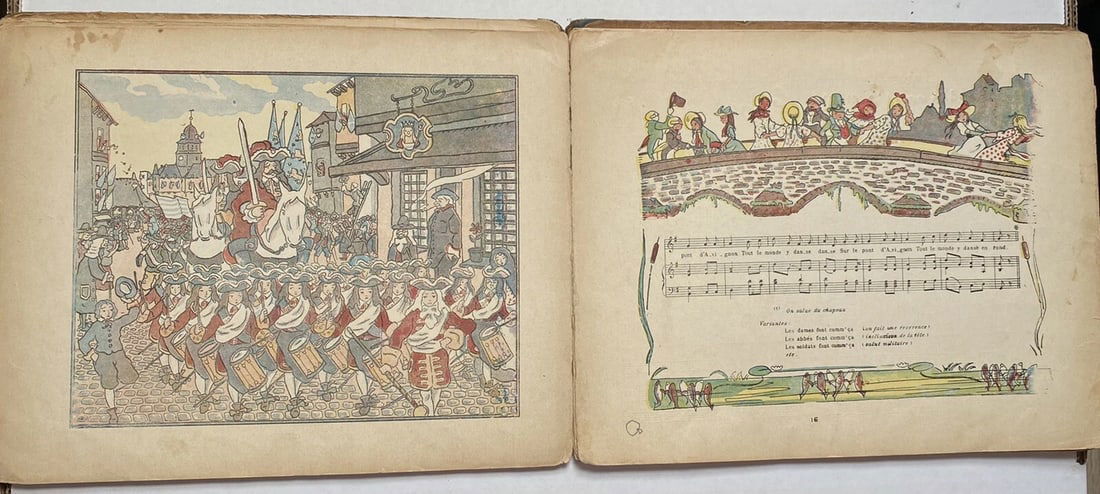 pont d'A_vi _ gnon Tout le monde y dan_se dan_se Sur le pont d'A_vi_gnon Tout le monde y danse en rond.
(1) On salue du chapeau
Variantes:
Les dames font comm' ça (on fait une révérence)
Les abbés font comm' ça (inclinaison de la tête)
Les soldats font comm' ça (salut militaire)
etc.
16